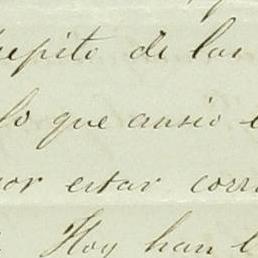 repito de las
lo que ansio
por estar corr
Hoy han l